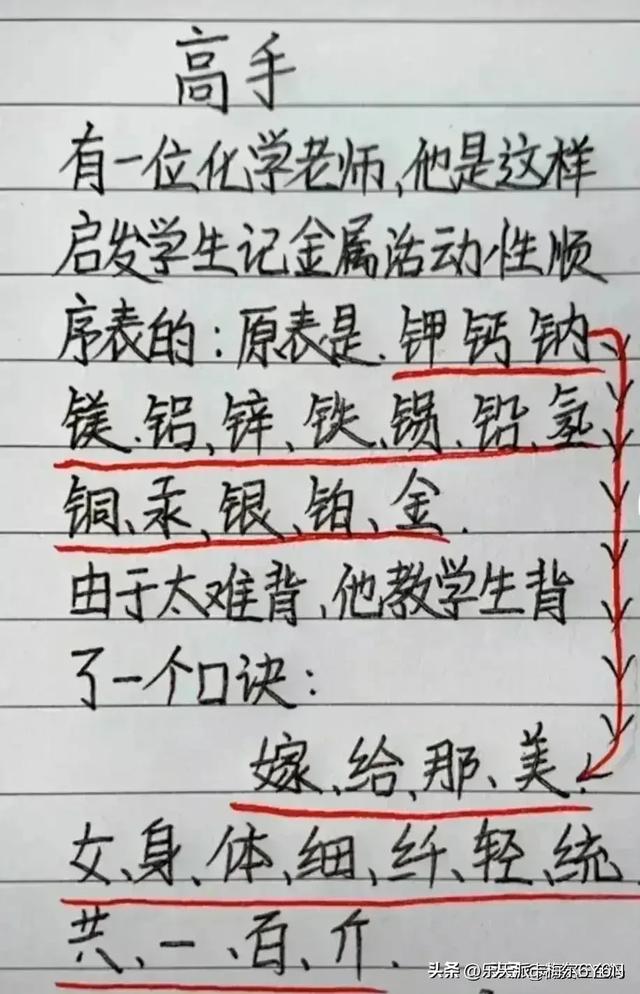 高手
有一位化学老师,他是这样
启发学生记金属活动性顺
序表的:原表是.钾钙钠、
镁.铝、锌、铁、锡.铅、氢
铜、汞、银、铂、金.
由于太难背,他教学生背
了一个口诀:
嫁、给、那、美.
女、身、体、细、纤、轻、统
共、一、百、斤.